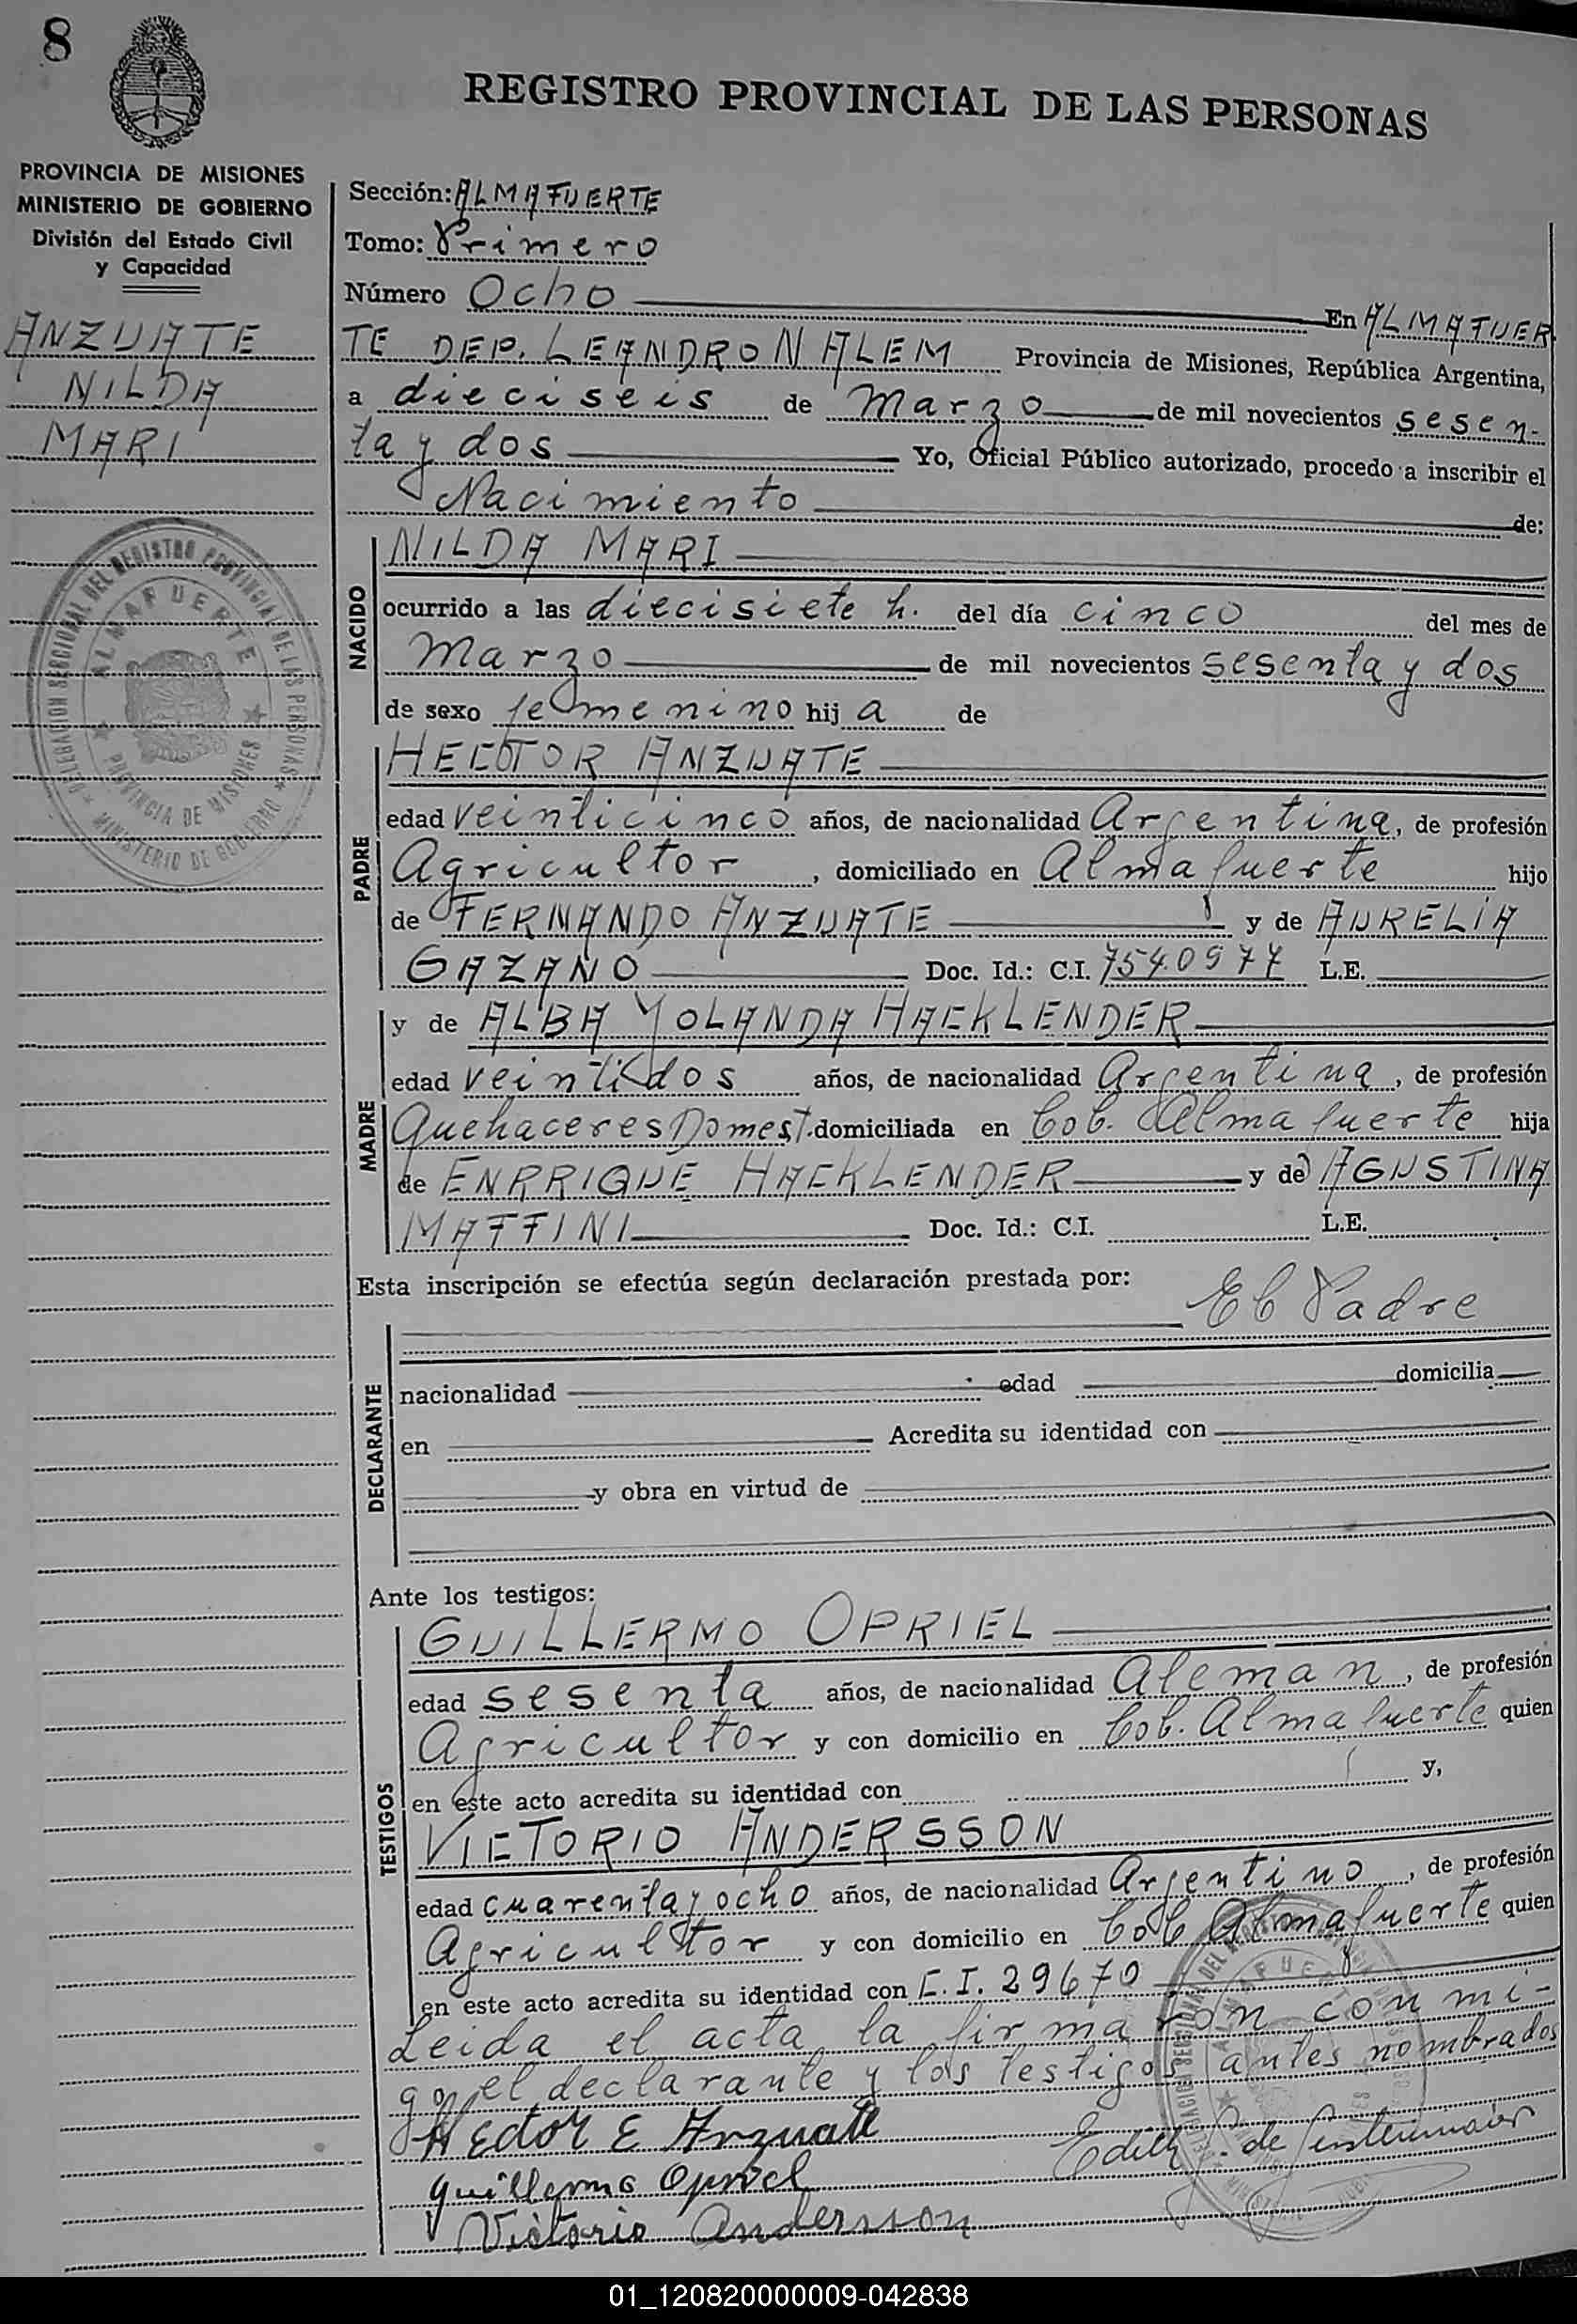 8
REGISTRO PROVINCIAL DE LAS PERSONAS
PROVINCIA DE MISIONES
MINISTERIO DE GOBIERNO
División del Estado Civil
y Capacidad
ANZUATE
NILDA
MARI
Sección: ALMAFUERTE
Tomo: Primero
Número Ocho En ALMAFUER
TE DEP. LEANDRO N ALEM Provincia de Misiones, República Argentina,
a dieciseis de Marzo de mil novecientos sesen-
ta y dos Yo, Oficial Público autorizado, procedo a inscribir el
Nacimiento de:
NACIDO
NILDA MARI
ocurrido a las diecisiete h. del día cinco del mes de
Marzo de mil novecientos sesenta y dos
de sexo femenino hij a de
PADRE
HECTOR ANZUATE
edad veinticinco años, de nacionalidad Argentina, de profesión
Agricultor, domiciliado en Almafuerte hijo
de FERNANDO ANZUATE y de AURELIA
GAZANO Doc. Id.: C.I. 7540977 L.E.
MADRE
y de ALBA YOLANDA HACKLENDER
edad veintidos años, de nacionalidad Argentina, de profesión
Quehaceres Domest. domiciliada en Col. Almafuerte hija
de ENRRIQUE HACKLENDER y de AGUSTINA
MAFFINI Doc. Id.: C.I. L.E.
Esta inscripción se efectúa según declaración prestada por:
El Padre
DECLARANTE
nacionalidad edad domicilia
en Acredita su identidad con
y obra en virtud de
Ante los testigos:
TESTIGOS
GUILLERMO OPRIEL
edad sesenta años, de nacionalidad Aleman, de profesión
Agricultor y con domicilio en Col. Almafuerte quien
en este acto acredita su identidad con y,
VICTORIO ANDERSSON
edad cuarenta y ocho años, de nacionalidad Argentino, de profesión
Agricultor y con domicilio en Col Almafuerte quien
en este acto acredita su identidad con C.I. 29670
Leida el acta la firmaron conmi-
go, el declarante y los testigos antes nombrados
Hector E Anzuate
Edith de
Guillermo Opriel
Victorio Andersson
DELEGACION SECCIONAL DEL REGISTRO PROVINCIAL DE LAS PERSONAS
ALMAFUERTE
PROVINCIA DE MISIONES
MINISTERIO DE GOBIERNO
01_120820000009-042838